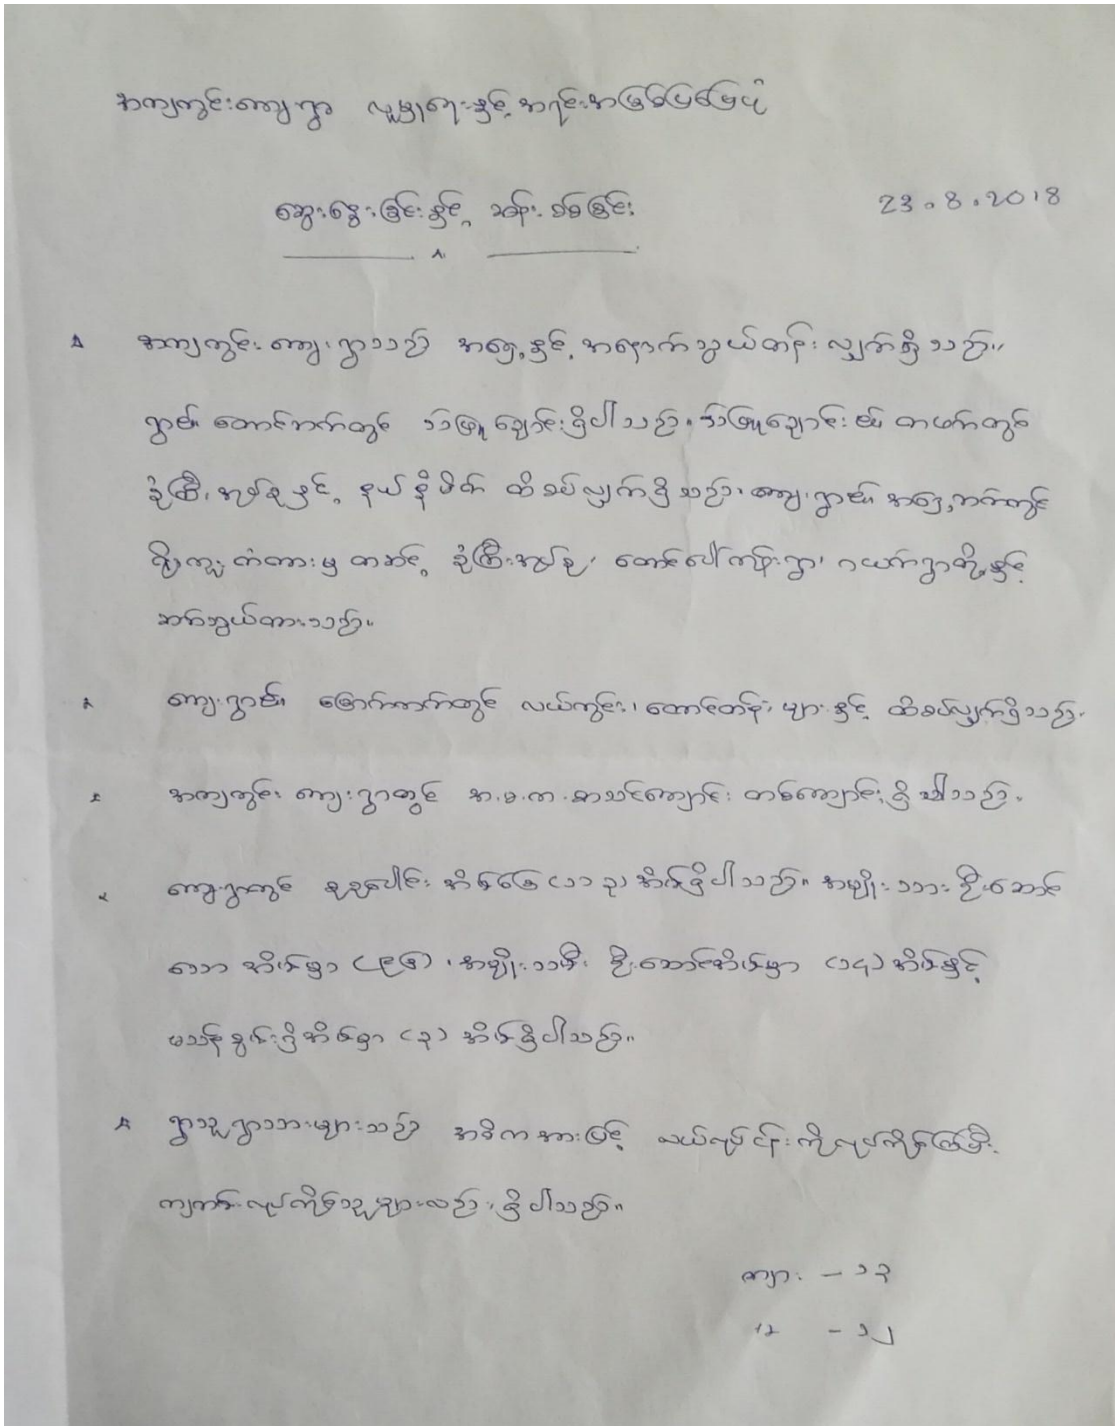 အကျကွင်းကျေးရွာ လူမှုရေးနှင့် အရင်းအမြစ်ပြမြေပုံ
ဆွေးနွေးခြင်းနှင့် ဆန်းစစ်ခြင်း 23.8.2018
အကျကွင်းကျေးရွာသည် အရှေ့နှင့် အနောက်သွယ်တန်းလျှက်ရှိသည်။
ရွာ၏ တောင်ဘက်တွင် ချောင်းရှိပါသည်။ ချောင်း၏ တဖက်တွင်
ခုံကြီးအုပ်စုနှင့် နယ်နိမိတ် ထိစပ်လျှက်ရှိသည်၊ ကျေးရွာ၏ အရှေ့ဘက်တွင်
ရိုးကူးတံတားမှ တဆင့် ခုံကြီးအုပ်စု၊ တောင်ပေါ်ကျွန်းရွာ၊ ဂယက်ရွာတို့နှင့်
ဆက်သွယ်ထားသည်။
ကျေးရွာ၏ မြောက်ဘက်တွင် လယ်ကွင်း၊ တောင်တန်းများနှင့် ထိစပ်လျှက်ရှိသည်။
အကျကွင်းကျေးရွာတွင် အ.မ.က.စာသင်ကျောင်း တစ်ကျောင်းရှိပါသည်။
ကျေးရွာတွင် စုစုပေါင်း အိမ်ခြေ (၁၁၃) အိမ်ရှိပါသည်။ အမျိုးသားဦးဆောင်
သော အိမ်မှာ (၉၆)၊ အမျိုးသမီး ဦးဆောင်အိမ်မှာ (၁၄) အိမ်နှင့်
မသန်စွမ်းရှိအိမ်မှာ (၃) အိမ်ရှိပါသည်။
ရွာသူရွာသားများသည် အဓိကအားဖြင့် လယ်လုပ်ငန်းကိုလုပ်ကိုင်ကြပြီး
ကျကမ်းလုပ်ကိုင်သူများလည်းရှိပါသည်။
ကျား - ၁၃
မ - ၁၂